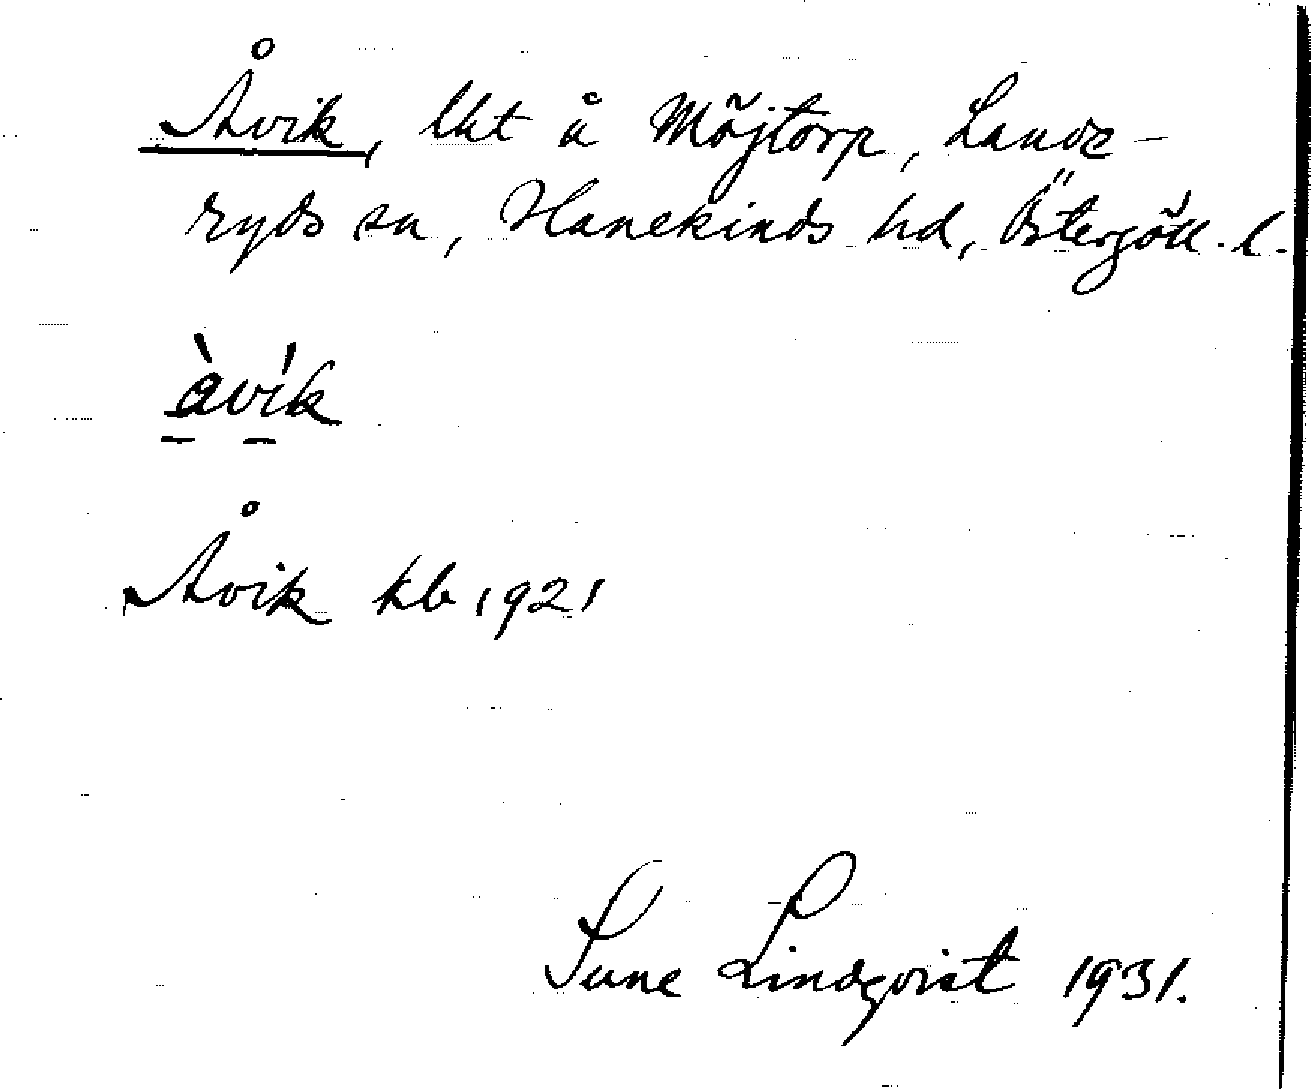 Åvik, lht å Möjtorp, Lands-
ryds sn, Hanekinds hd, Östergötl. l.
àvík
Åvik kb 1921
Sune Lindqvist 1931.